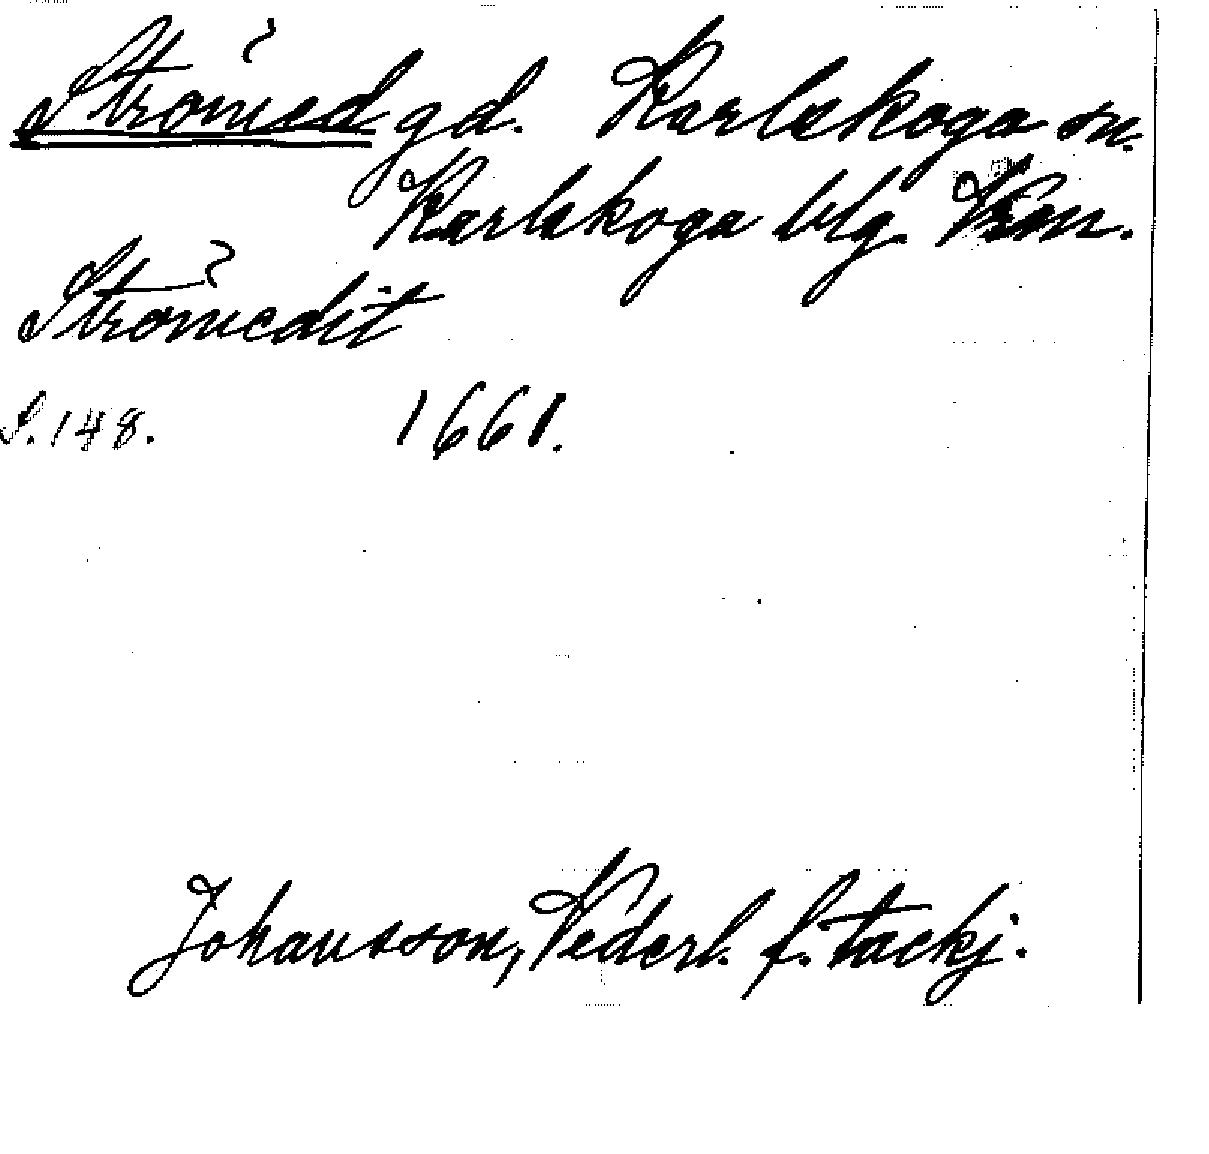 Strömed gd. Karlskoga sn.
Karlskoga blg. Vrm.
Strömedit
S. 148. 1661.
Johansson, Vederl. f. tackj.